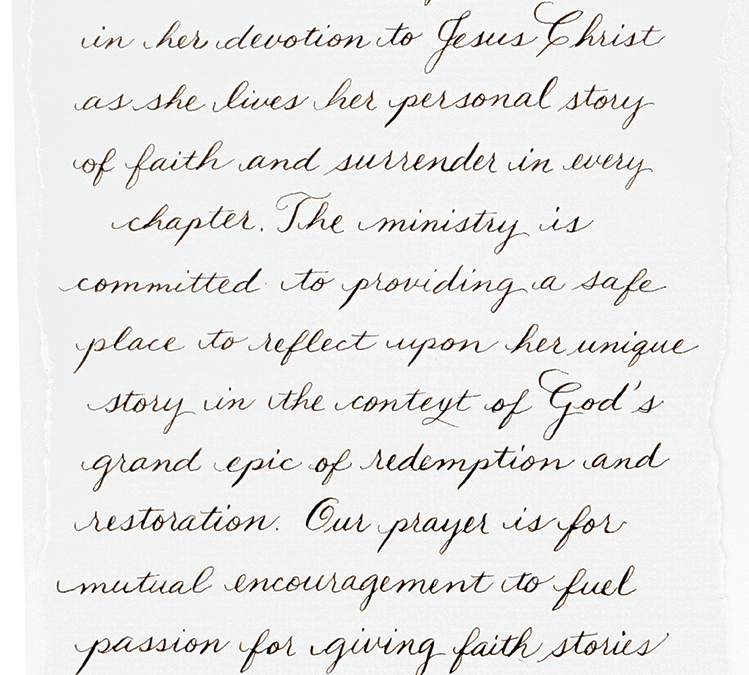 in her devotion to Jesus Christ
as she lives her personal story
of faith and surrender in every
chapter. The ministry is
committed to providing a safe
place to reflect upon her unique
story in the context of God's
grand epic of redemption and
restoration. Our prayer is for
mutual encouragement to fuel
passion for giving faith stories